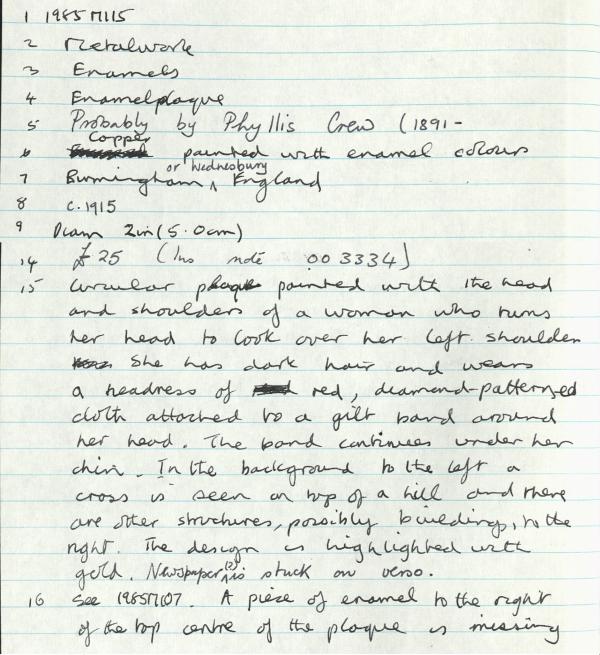 1 1985M115
2 Metalwork
3 Enamels
4 Enamel plaque
5 Probably by Phyllis Crew (1891-
Copper
6 painted with enamel colours
or Wednesbury
7 Birmingham ^ England
8 c.1915
9 Diam 2in (5.0cm)
14 £25 (Ins note 003334)
15 Circular plaque painted with the head
and shoulders of a woman who turns
her head to look over her left shoulder
She has dark hair and wears
a headress of red, diamond-patterned
cloth attached to a gilt band around
her head. The band continues under her
chin. In the background to the left a
cross is seen on top of a hill and there
are other structures, possibly buildings, to the
right. The design is highlighted with
gold. Newspaper (?) is stuck on verso.
16 See 1985M107. A piece of enamel to the right
of the top centre of the plaque is missing